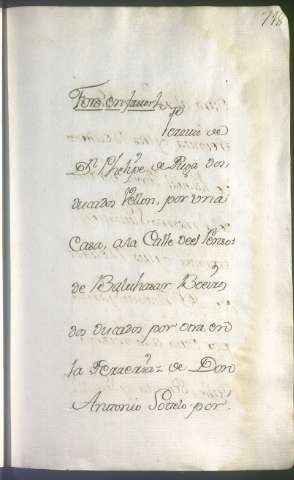 718
Foro en favor
de
Dn. Phelipe de Puga dos
ducados Vellon, por una
Casa, a la Calle del
de Balthazar
dos ducados por otra en
la Ferreria = de Don
Antonio Sotelo por